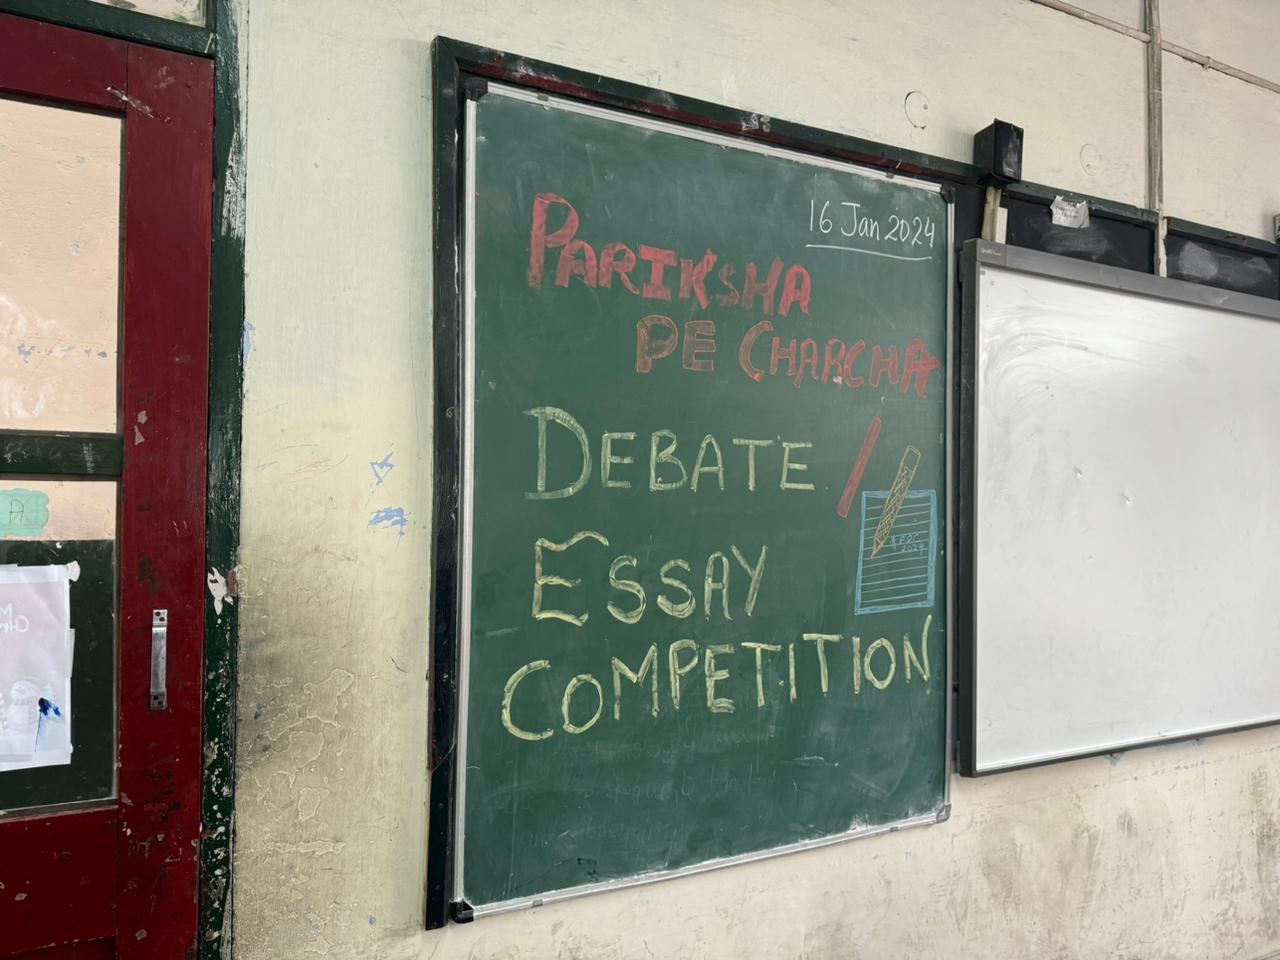 16 Jan 2024
PARIKSHA
PE CHARCHA
DEBATE
ESSAY
COMPETITION
PPC
2024
A